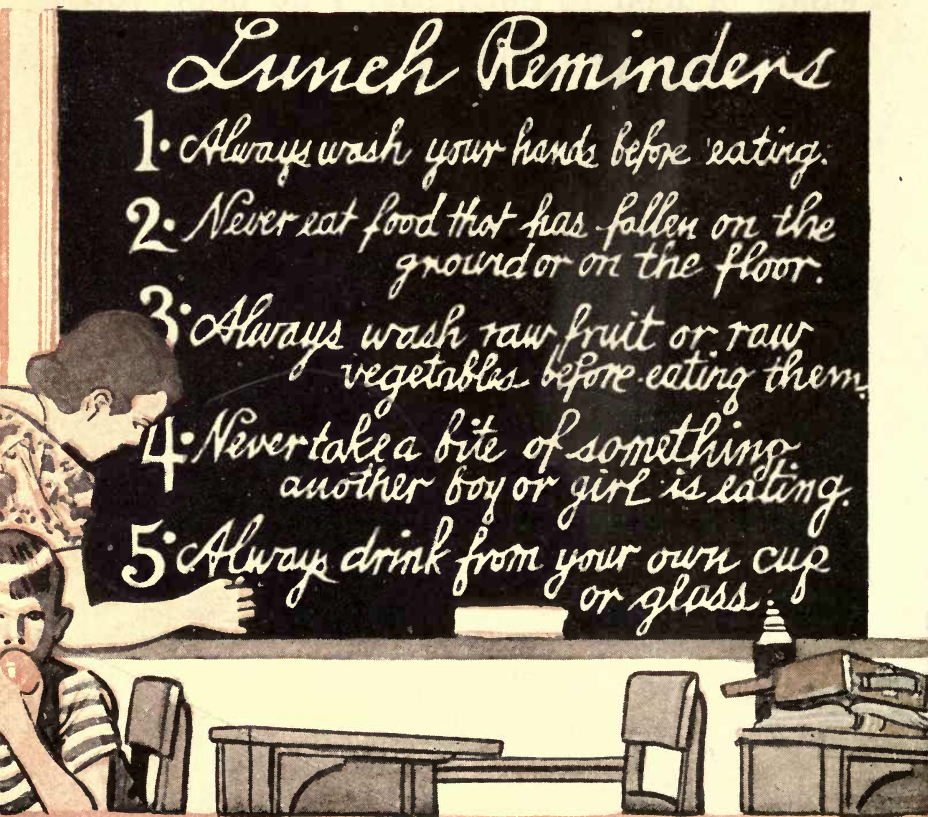 Lunch Reminders
1. Always wash your hands before eating.
2. Never eat food that has fallen on the
ground or on the floor.
3. Always wash raw fruit or raw
vegetables before eating them.
4. Never take a bite of something
another boy or girl is eating.
5. Always drink from your own cup
or glass.